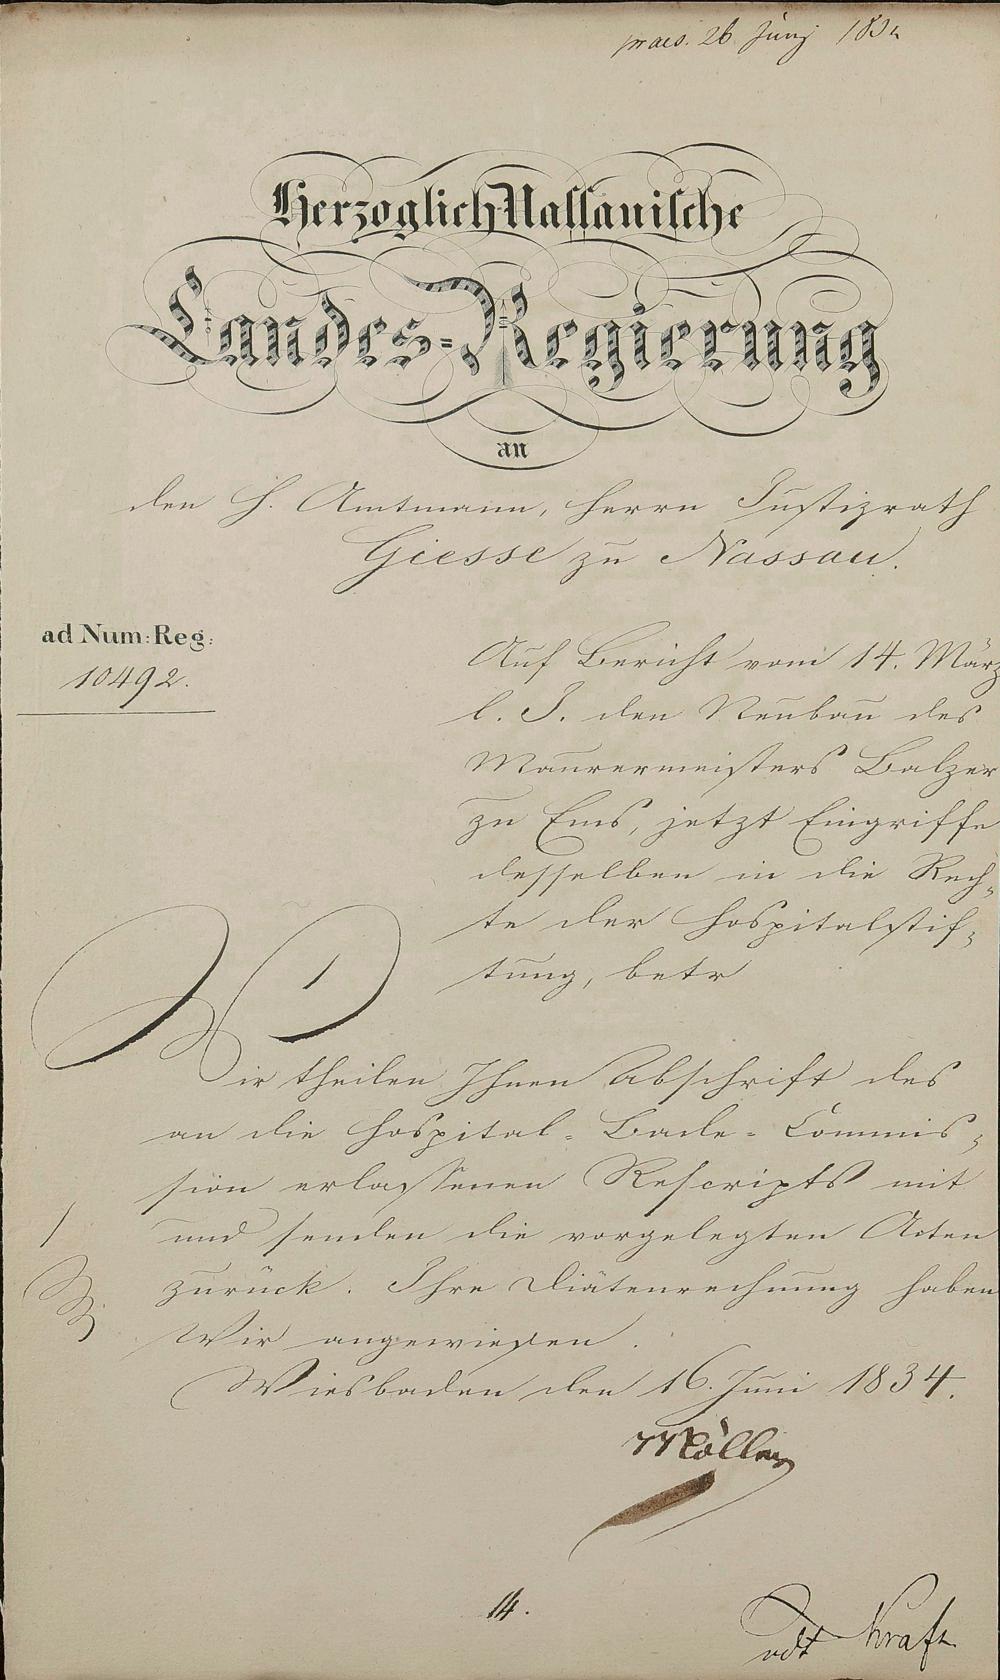 praes. 26 Junj 1834
Herzoglich Nassauische
Landes-Regierung
an
den H. Amtmann, Herrn Justizrath
Giesse zu Nassau.
ad Num: Reg:
10492.
Auf Bericht vom 14. März
l. J. den Neubau des
Maurermeisters Balzer
zu Ems, jetzt Eingriffe
desselben in die Rech-
te der Hospitalstif-
tung, betr
Wir theilen Ihnen Abschrift des
an die Hospital-Bade-Commis-
sion erlassenen Rescripts mit
und senden die vorgelegten Acten
zurück. Ihre Diätenrechnung haben
Wir angewiesen.
Wiesbaden den 16. Juni 1834.
Möller
14.
vdt Kraft